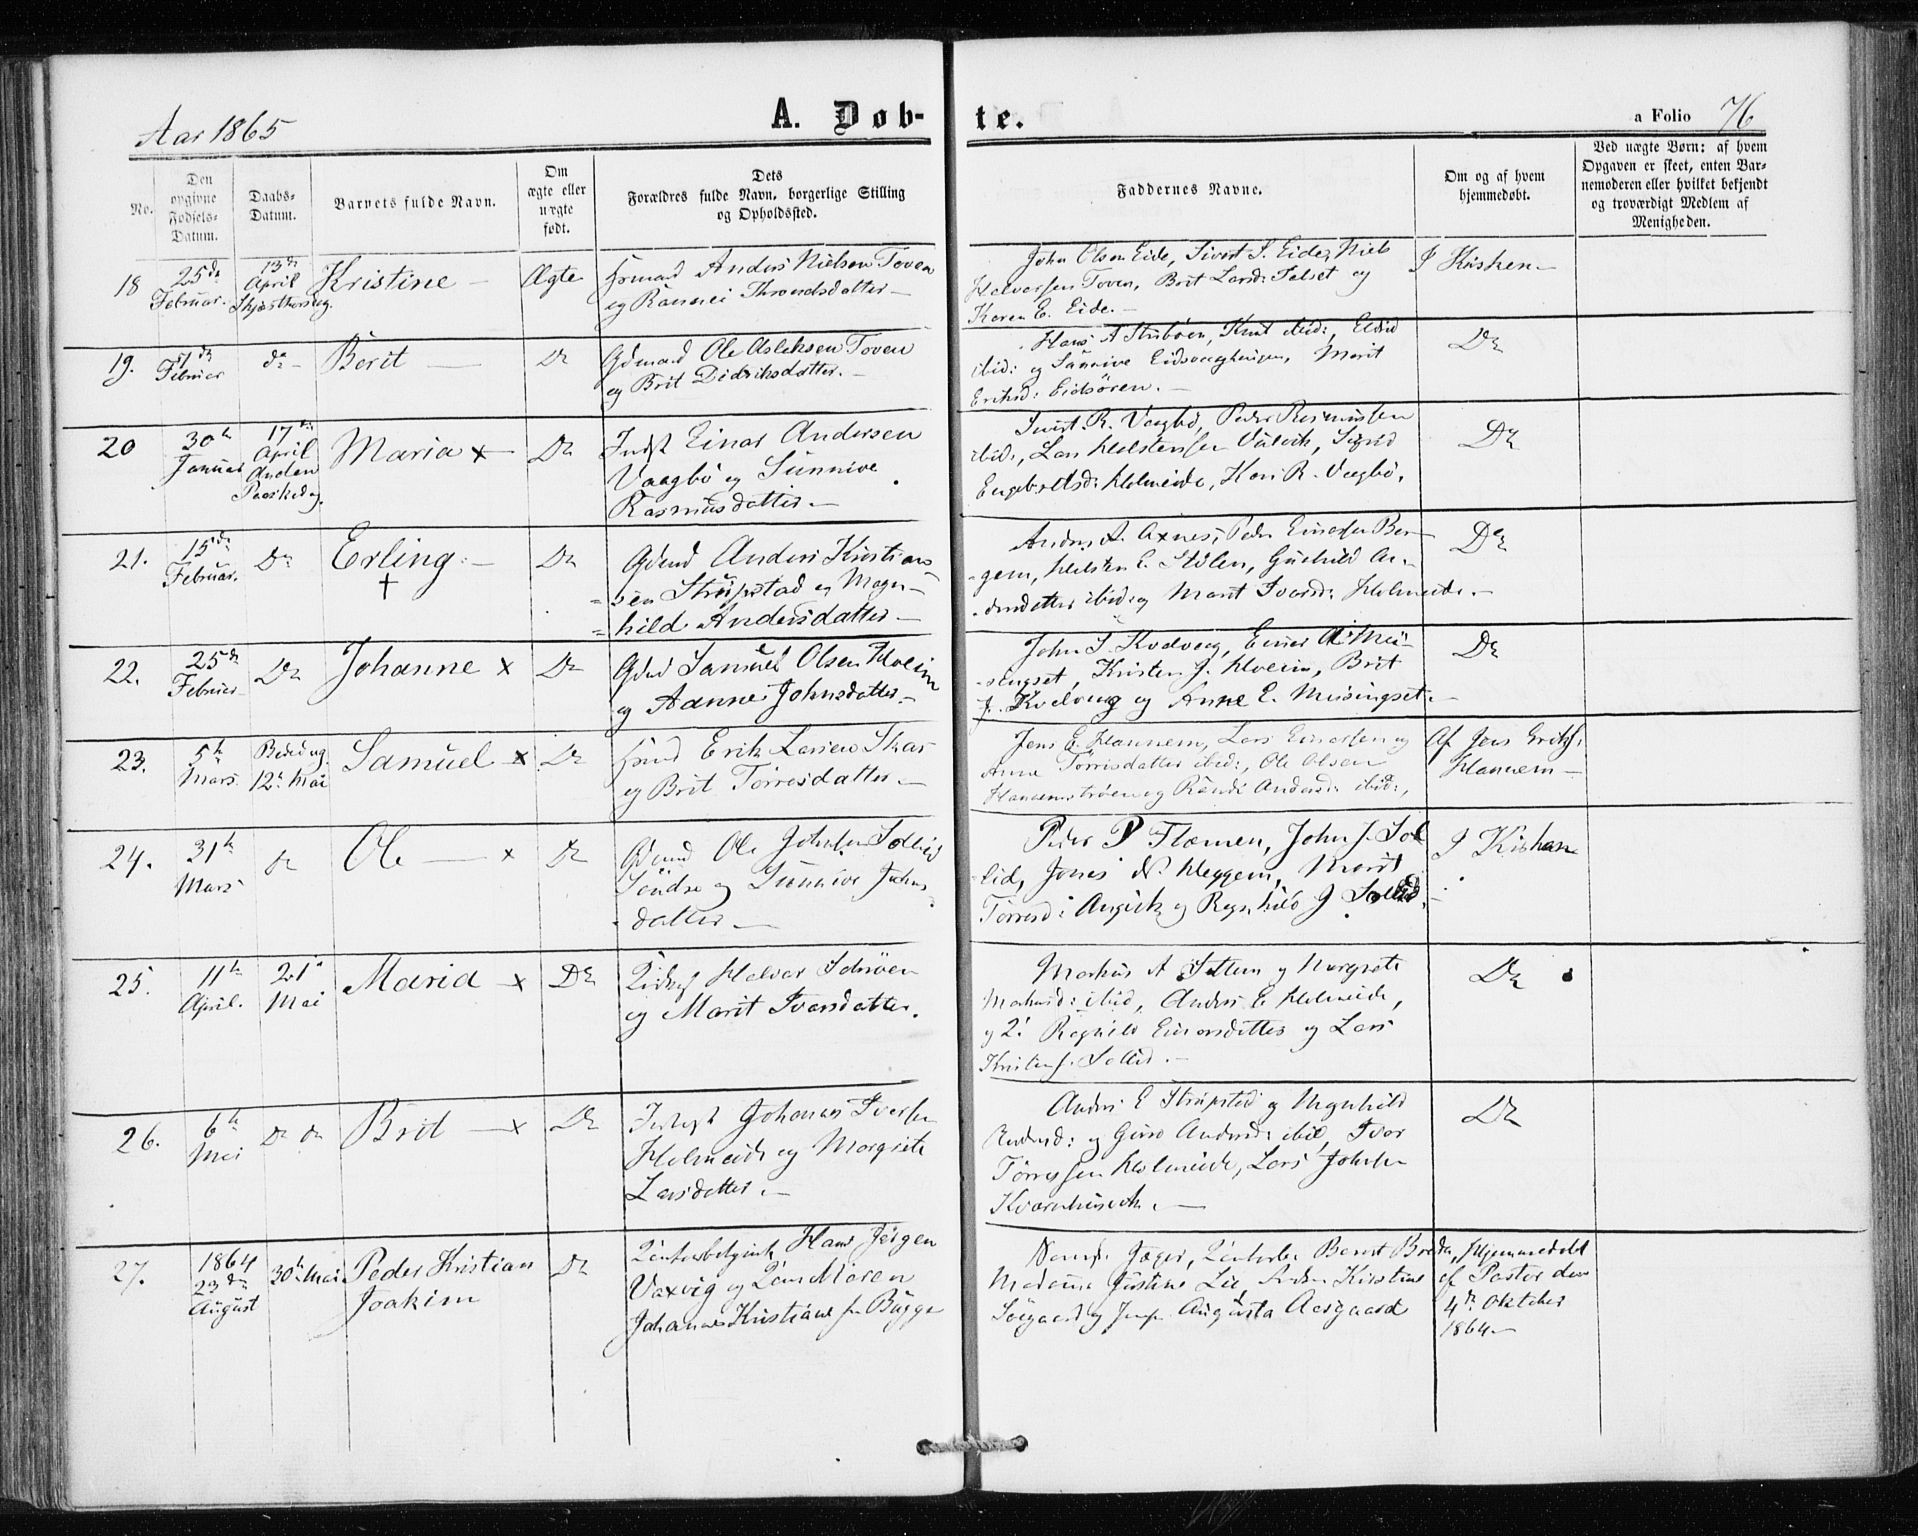 Aar 1865
A. Døb-
te.
a Folio 76
No.
Den
opgivne
Fødsels-
Datum.
Daabs-
Datum.
Barnets fulde Navn.
Om
ægte eller
uægte
født.
Dets
Forældres fulde Navn, borgerlige Stilling
og Opholdssted.
Faddernes Navne.
Om og af hvem
hjemmedøbt.
Ved uægte Børn: af hvem
Opgaven er skeet, enten Bar-
nemoderen eller hvilket bekjendt
og troværdigt Medlem af
Menigheden.
18
25de
Februar.
13de
April
Skjærthorsdag.
Kristine —
Ægte
Anders Nielsen Toven
og Rannei Throndsdatter —
John Olsen Eide, Sivert S. Eide, Niels
Halvorsen Toven, Brit Larsd: Talset og
Karen E. Eide. —
I Kirken —
19.
Februar
do —
Berit —
Do
Gdmand Ole Aslaksen Toven
og Brit Didriksdatter. —
Hans A Stubøen, Knut ibid:,
ibid: og Sünnive Eidsvaaghaugen, Marit
Eriksd: Eidsøren. —
Do
20
30te
Januar
17de
April
Anden
Paaskedag.
Maria x —
Do
Indst Einar Andersen
Vaagbø og Sünnive
Rasmusdatter. —
R. Vaagbø, Peder Rasmussen
ibid:, Lars Halstensen Sigrid
Engebretsd: Holmeide, Kari R. Vaagbø.
Do
21.
15de
Februar.
Do
Erling. —
+
Do
Gdmd Anders Kristian-
=sen Strüpstad og Magn-
=hild Andersdatter —
Anders A. Axnes, Peder Einarsen Ber-
-gem, Halsten E. Stølen, Gunhild An-
-dersdatter ibid: og Marit Ivarsd: Holmeide. —
Do
22.
25de
Februar
Do
Johanne x
Do
Gdmd Samüel Olsen Hoem
og Aanne Johnsdatter. —
John S. Kvelvaag, Einar A Mei-
-singset, Kristen J. Hoem, Brit
J. Kvelvaag og Anne E. Meisingset. —
Do
23.
5te
Mars.
Bededag
12te Mai
Samüel — x
Do
Erik Larsen Skar
og Brit Tørresdatter —
Jens E. Hannem, Lars Einarsen og
Anne Tørrisdatter ibid:, Ole Olsen
Hannemstrøen og Randi Andersd: ibid:,
Af Jens Eriks.
Hannem —
24.
31te
Mars
do
Ole — x
Do
Gdmd Ole Johnsen Sollid
Søndre og Sünnive Johns
-datter —
Peder P Flemmen, John J. Sol
lid, Jonas N. Heggem, Marit
Tørresd: Angvik og Ragnhild J Sollid.
I Kirken
25.
11te
April.
21de
Mai
Maria — x
Do
Halvor
og Marit Ivarsdatter.
Markus A Settem og Margrete
Markusd: ibid, Anders E Holmeide,
Ragnhild Einarsdatter og Lars
Kristens. Sollid. —
Do
26.
6te
Mai
Do do
Brit — x
Do
Indst Johannes Iversen
Holmeide og Margrete
Larsdatter. —
Anders E Strüpstad og Magnhild
Andersd: og Guro Andersd: ibid, Ivar
Tørressen Holmeide, Lars Johnsen
Kvernhusvik. —
Do
27.
1864
23de
August
30te Mai
Peder Kristian
Joakim
Do
Hans Jørgen
Vaxvig og Maren
Johanne Kristiane f. Bügge
Jæger, Berent Breda,
Madamme Justine Lie, Kirstine
Søegaard og Augusta Aasgaard
Hjemmedøbt
af Pastor den
4de Oktober
1864 —